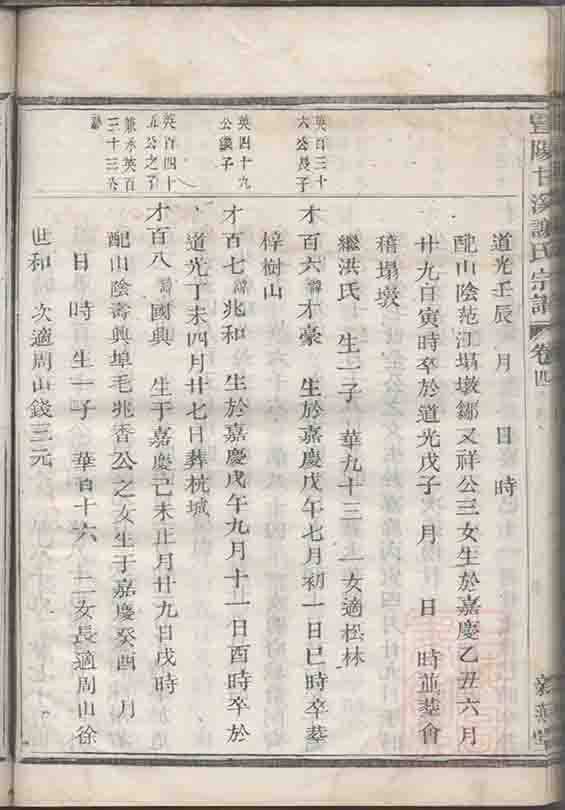 暨陽甘溪謝氏宗譜 卷四
道光壬辰 月 日 時
配山陰范江塌墩鄒又祥公三女生於嘉慶乙丑六月
廿九日寅時卒於道光戊子 月 日 時並葬會
稽塌墩
繼洪氏 生一子 華九十三 一女適松林
英百三十
六公長子
才百六 諱才豪 生於嘉慶戊午七月初一日巳時卒葬
樟樹山
英四十九
公 子
才百七 諱兆和 生於嘉慶戊午九月十一日酉時卒於
道光丁未四月廿七日葬杭城
英百四十
五公之子
兼承英百
三十三公
才百八 諱國典 生于嘉慶己未正月廿九日戌時
配山陰壽興埠毛兆香公之女生于嘉慶癸酉 月
日 時 生一子 華百十六 二女長適周山徐
世和 次適周山錢三元